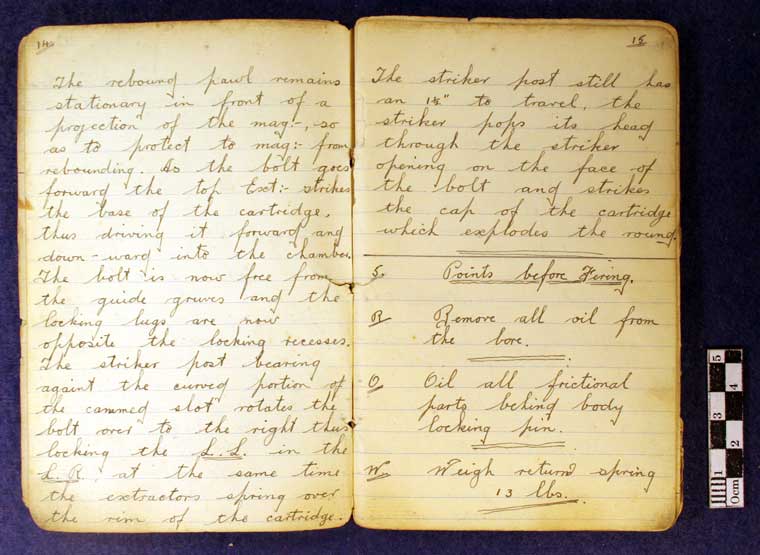 14.
The rebound pawl remains
stationary in front of a
projection of the mag-, so
as to protect to mag:- from
rebounding. As the bolt goes
forward the top Ext:- strikes
the base of the cartridge,
thus driving it forward and
down-ward into the chamber.
The bolt is now free from
the guide gruves and the
locking lugs are now
opposite the locking recesses.
The striker post bearing
againt the curved portion of
the cammed slot rotates the
bolt over to the right thus
locking the L.L. in the
L.R. at the same time
the extractors spring over
the rim of the cartridge.
15
The striker post still has
an to travel, the
striker pops its head
through the striker
opening on the face of
the bolt and strikes
the cap of the cartridge
which explodes the round.
S. Points before Firing.
R Remove all oil from
the bore.
O Oil all frictional
parts behind body
locking pin.
W Weigh return spring
13 lbs.
0cm 1 2 3 4 5